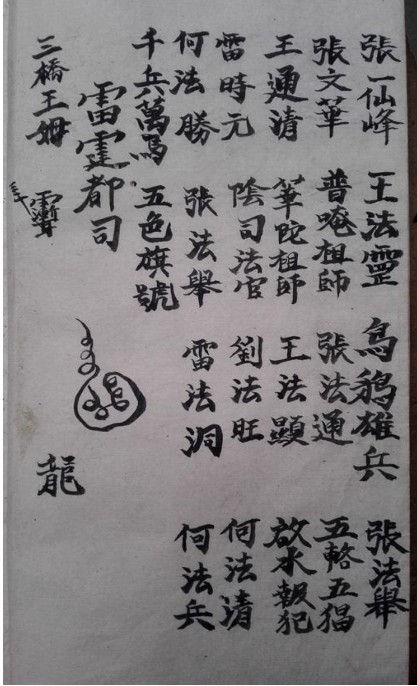 張一仙峰 王法靈 烏鵶雄兵 張法舉
張文華 普唵祖師 張法通 五輅五猖
王通清 華陀祖師 王法顯 水報犯
雷時元 陰司法官 劉法旺 何法清
何法勝 張法舉 雷法洞 何法兵
千兵萬馬 五色旗號
雷霆都司
三橋王姆 龍